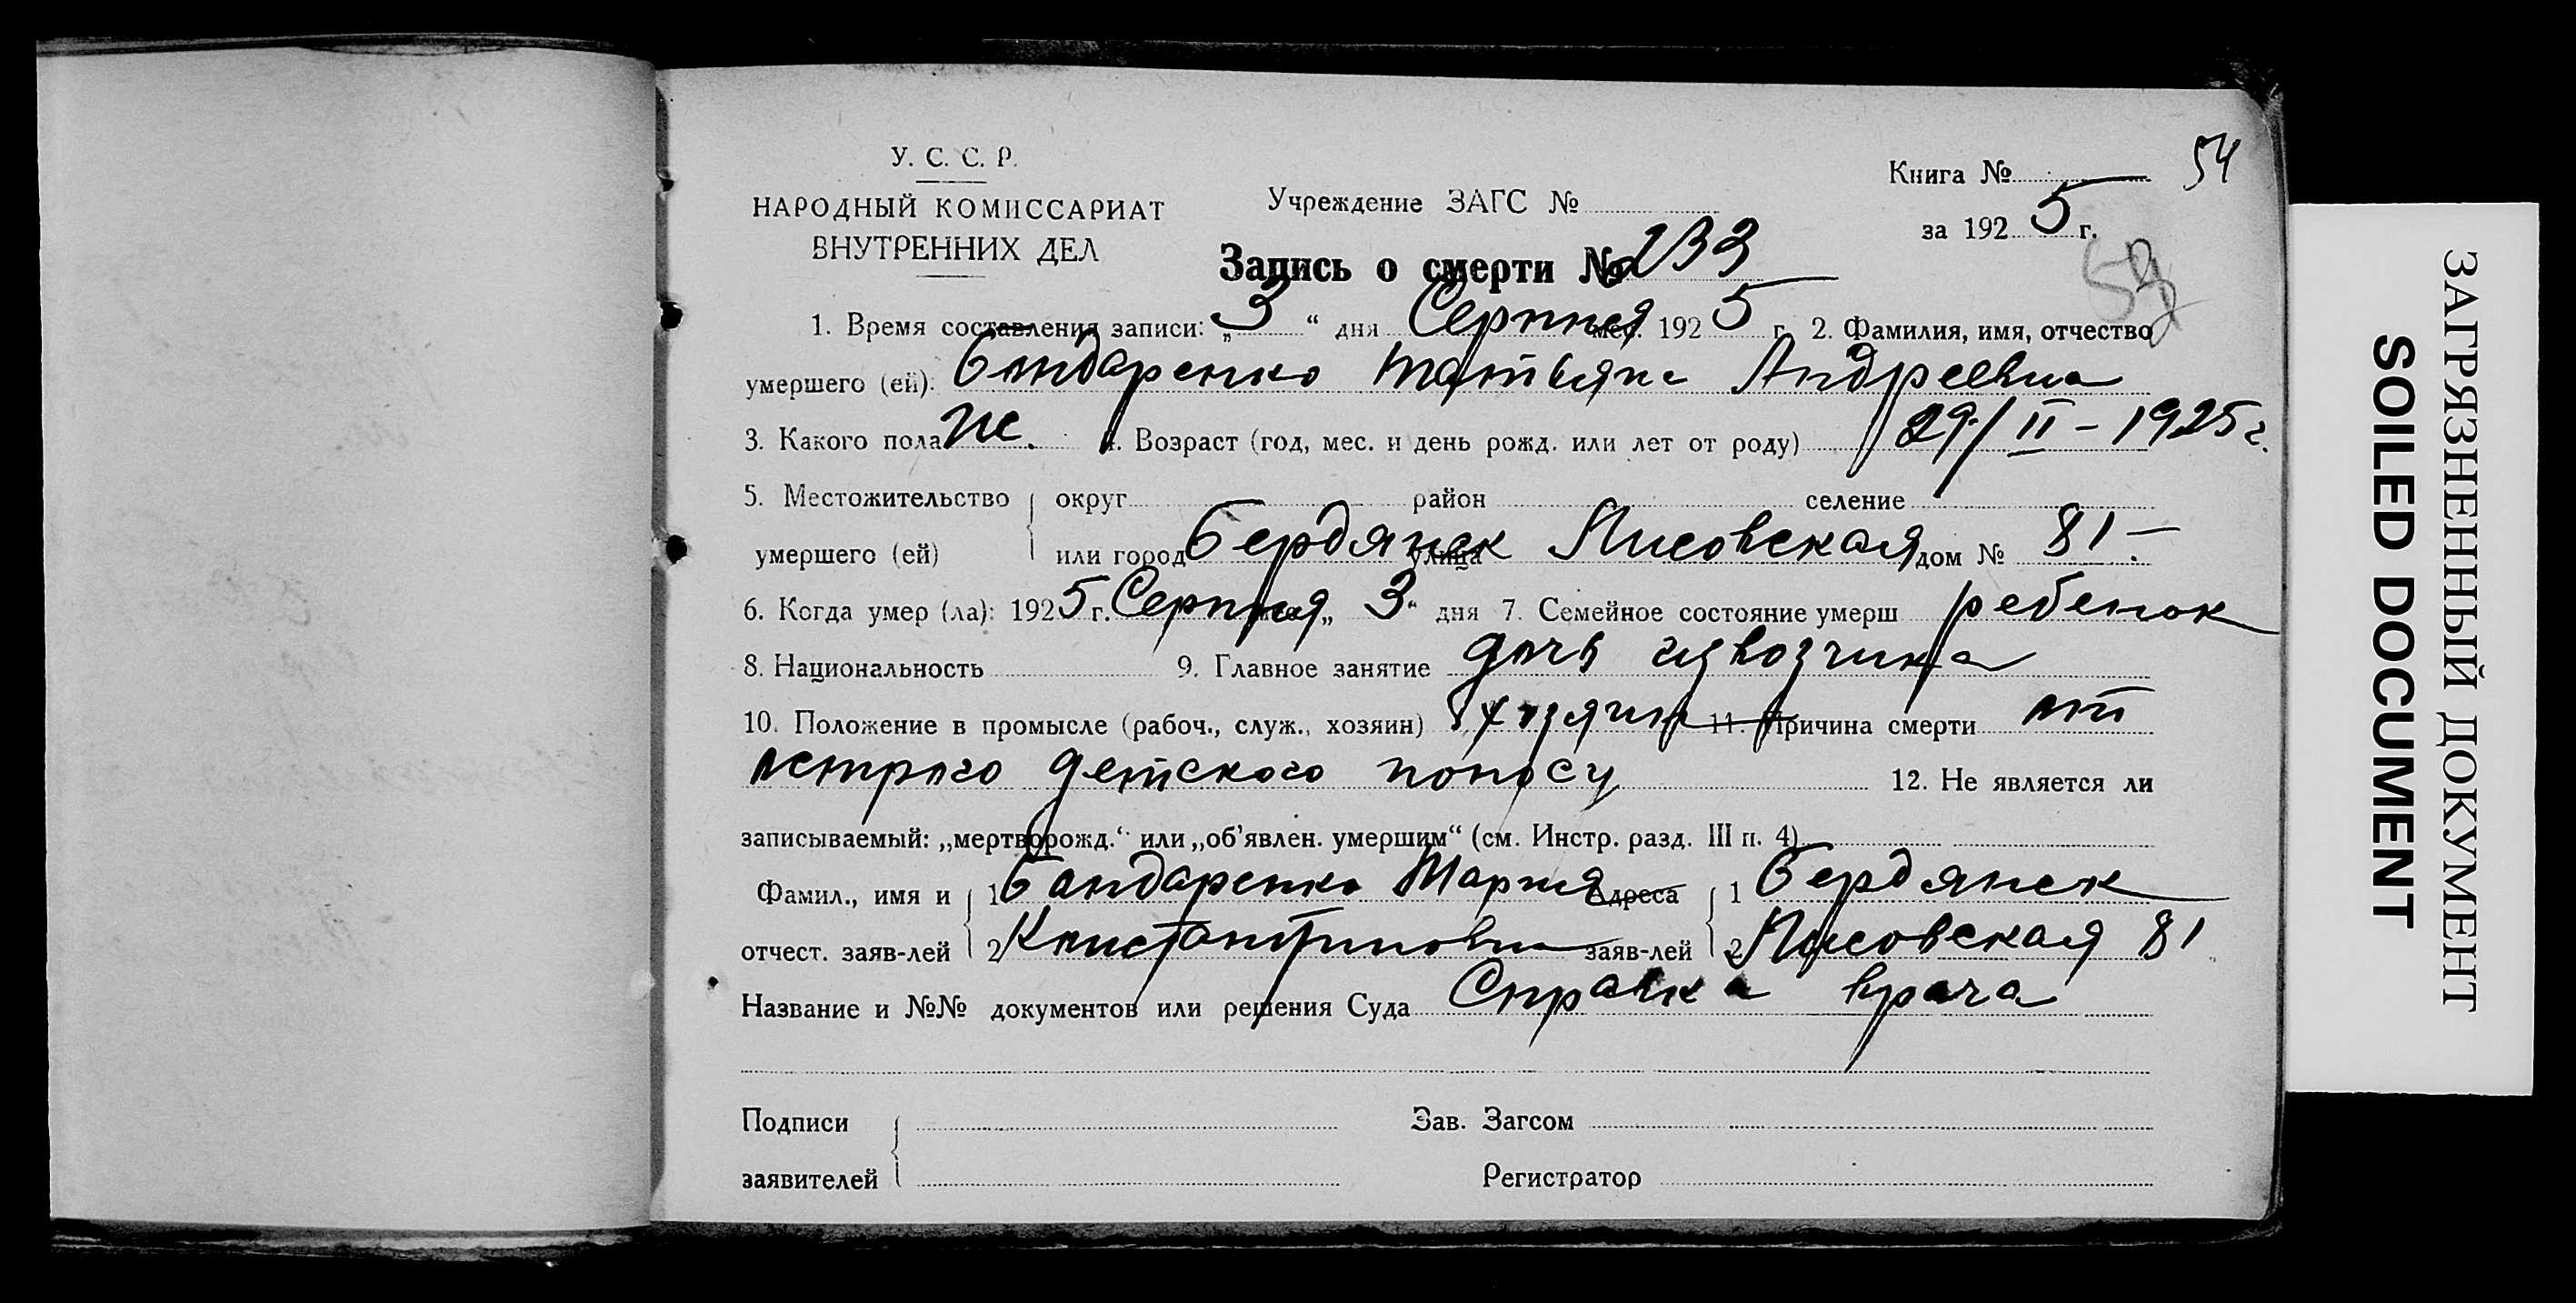 У. С. С. Р.
НАРОДНЫЙ КОМИССАРИАТ
ВНУТРЕННИХ ДЕЛ
Учреждение ЗАГС №
Книга № 54
за 1925 г.
Запись о смерти № 133
1. Время составления записи: „3“ дня Серпня мес. 1925 г. 2. Фамилия, имя, отчество
умершего (ей): Бондаренко Татьяна Андреевна
3. Какого пола ж. 4. Возраст (год, мес. и день рожд. или лет от роду) 29/II – 1925 г.
5. Местожительство округ район селение
умершего (ей) или город Бердянск улица Лисовская дом № 81
6. Когда умер (ла): 1925 г. Серпня мес. „3“ дня 7. Семейное состояние умерш ребенок
8. Национальность 9. Главное занятие дочь извозчика
10. Положение в промысле (рабоч., служ., хозяин) хозяин 11. Причина смерти от
острого детского поносу 12. Не является ли
записываемый: „мертворожд.“ или „об'явлен. умершим“ (см. Инстр. разд. III п. 4)
Фамил., имя и 1 Бандаренко Мария Адреса 1 Бердянск
отчест. заяв-лей 2 Константиновна заяв-лей 2 Лисовская 81
Название и №№ документов или решения Суда Справка врача
Подписи Зав. Загсом
заявителей Регистратор
ЗАГРЯЗНЕННЫЙ ДОКУМЕНТ
SOILED DOCUMENT